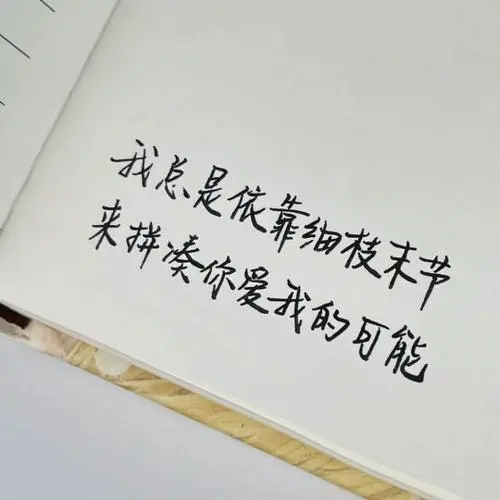 我总是依靠细枝末节
来拼凑你爱我的可能